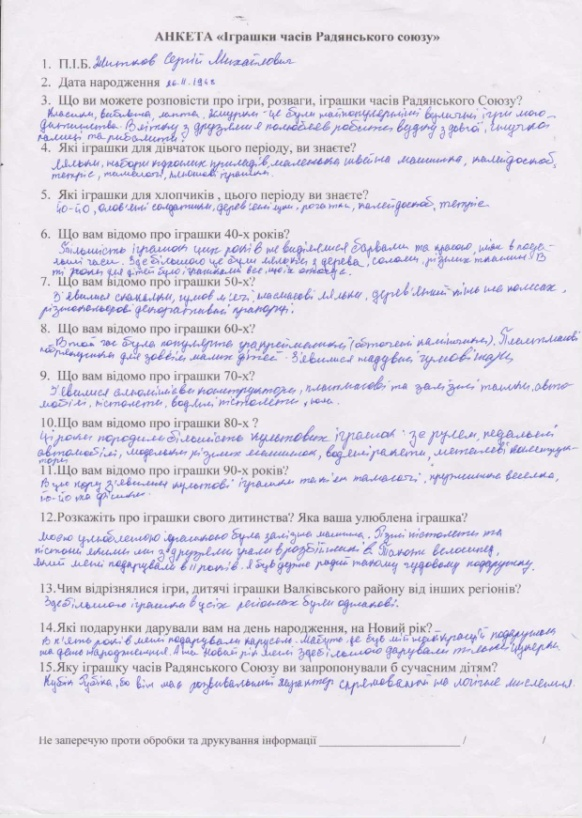 АНКЕТА «Іграшки часів Радянського союзу»
1. П.І.Б. Сергій Михайлович
2. Дата народження
3. Що ви можете розповісти про ігри, розваги, іграшки часів Радянського Союзу?
Класики, вибивна, лапта, жмурки - це були найпопулярніші вуличні ігри мого
дитинства. Влітку з друзями я полюбляв робити вудочку з
та рибалити.
4. Які іграшки для дівчаток цього періоду, ви знаєте?
Ляльки, набори кухонних приладів, маленька швейна машинка, калейдоскоп,
тетріс, тамагочі, плюшові іграшки.
5. Які іграшки для хлопчиків , цього періоду ви знаєте?
Йо-йо, олов'яні солдатики, дерев'яні луки, рогатка, калейдоскоп, тетріс.
6. Що вам відомо про іграшки 40-х років?
Більшість іграшок цих років не виділялися барвами та красою, ніж в
часи. Здебільшого це були ляльки з дерева, соломи, різних тканин. В
ті роки для дітей було іграшками все, що їх оточує.
7. Що вам відомо про іграшки 50-х?
З'явилися скакалки, гумові м'ячі, пластмасові ляльки, дерев'яний кінь на колесах,
різнокольорові декоративні прапорці.
8. Що вам відомо про іграшки 60-х?
В той час була популярна гра (обточені камінчики). Пластмасові
для зовсім малих дітей. З'явилися надувні гумові
9. Що вам відомо про іграшки 70-х?
З'явилися алюмінієві конструктори, пластмасові та залізні танки, авто-
мобілі, пістолети, водяні пістолети, юла.
10.Що вам відомо про іграшки 80-х ?
Ці роки породили більшість культових іграшок: за рулем, педальні
автомобілі, модельки різних машинок, водяні ракети, металеві конструк-
тори.
11.Що вам відомо про іграшки 90-х років?
В цю пору з'явились культові іграшки такі як тамагочі, пружинка веселка,
йо-йо та фішки.
12.Розкажіть про іграшки свого дитинства? Яка ваша улюблена іграшка?
Моєю улюбленою іграшкою була залізна машина. Різні пістолети та
пістони якими ми з друзями грали в розбійників. Також велосипед,
який мені подарували в 11 років. Я був дуже радий такому чудовому подарунку.
13.Чим відрізнялися ігри, дитячі іграшки Валківського району від інших регіонів?
Здебільшого іграшки в усіх регіонах були однакові.
14.Які подарунки дарували вам на день народження, на Новий рік?
В п'ять років мені подарували карусель. Мабуть це був мій найкращий подарунок
на день народження. А на Новий рік мені здебільшого дарували тільки цукерки.
15.Яку іграшку часів Радянського Союзу ви запропонували б сучасним дітям?
Кубік Рубіка, бо він має розвивальний характер спрямований на логічне мислення.
Не заперечую проти обробки та друкування інформації ________________________ / /